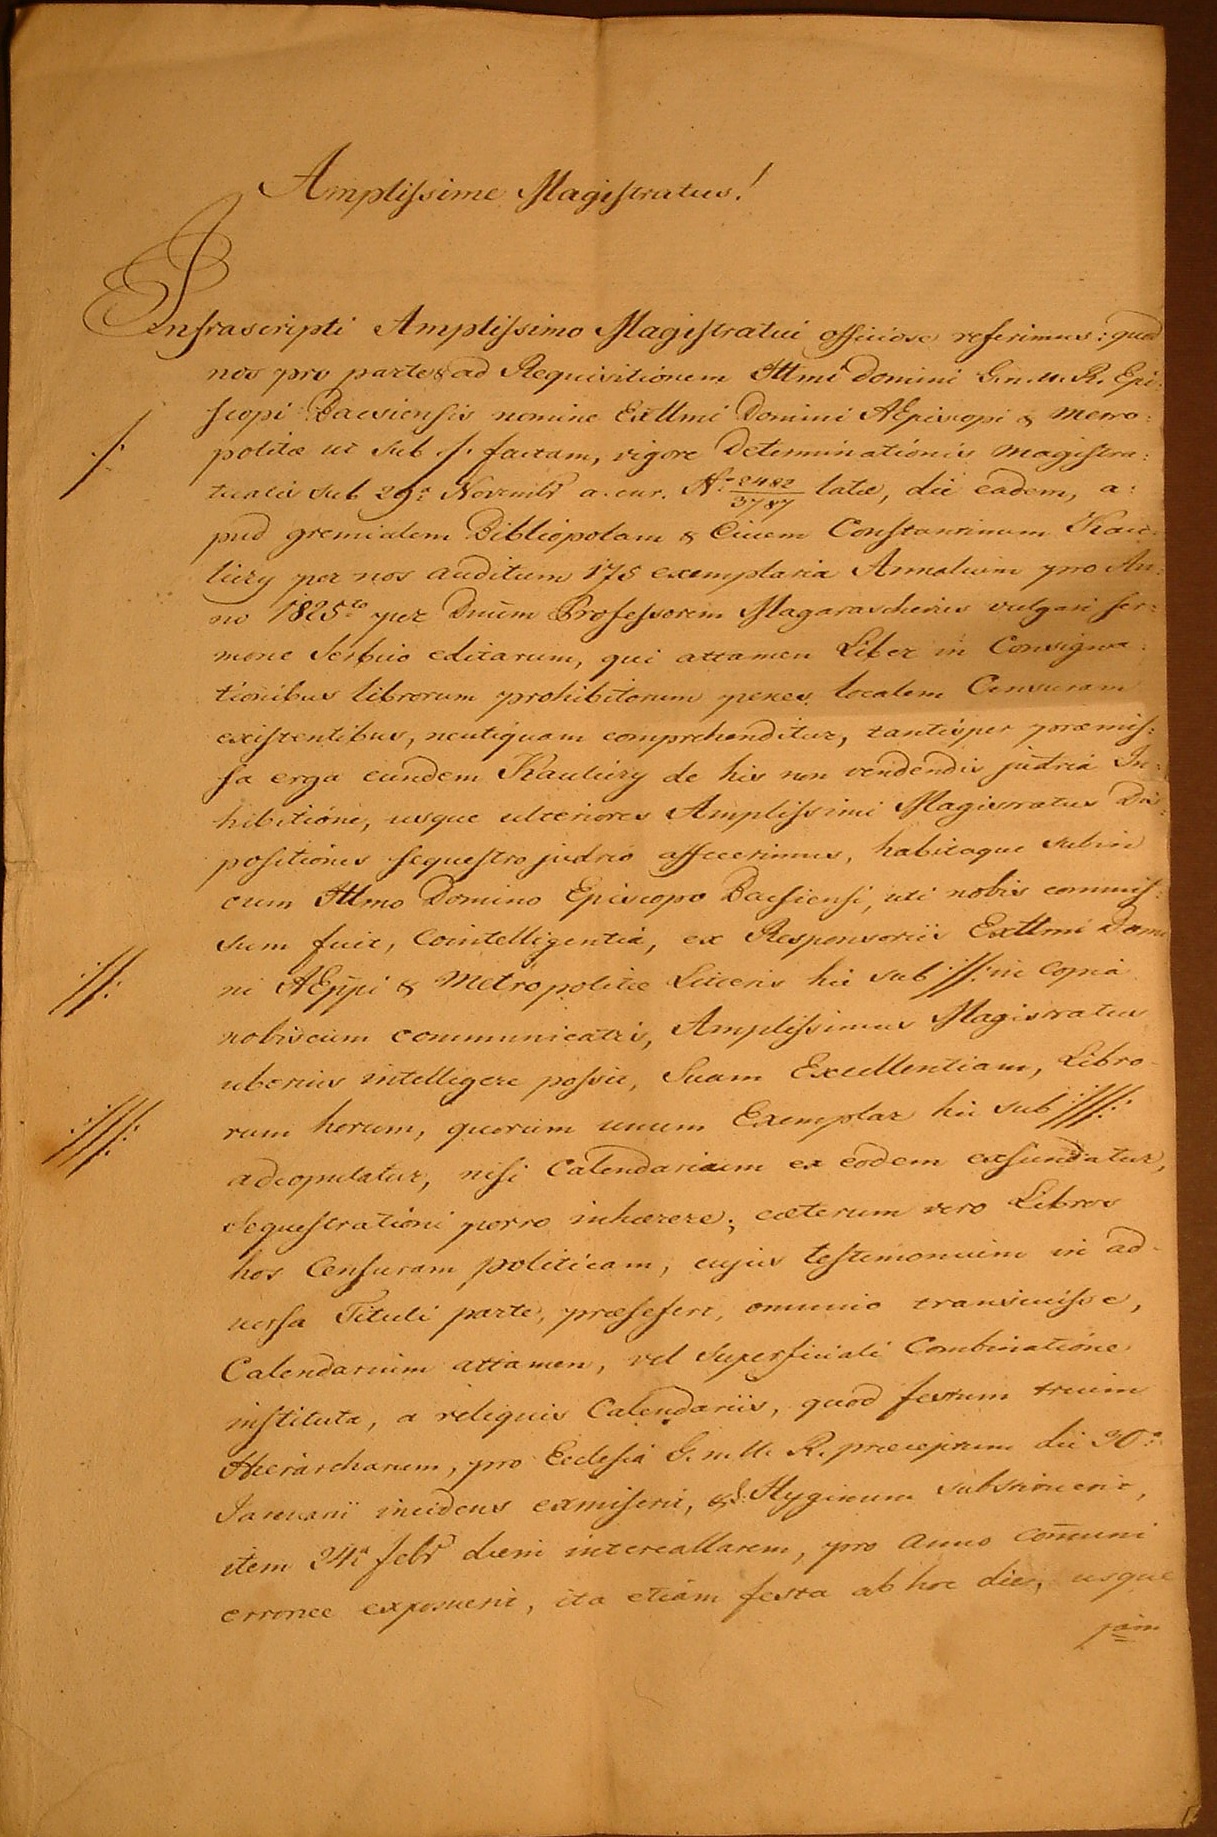 Amplissime Magistratus!
Infrascripti Amplissimo Magistratui officiose referimus: quod
nos pro parte & ad Requisitionem Illmi Domini G. n. u. R. Epi:
scopi Bacsiensis nomine Exllmi Domini AEpiscopi & Metro:
./. politæ ut sub ./. factam, vigore Determinationis Magistra:
tualis sub 29a Novembr a. cur. No 2482/3787 latæ, die eadem, a:
pud gremialem Bibliopolam & Civem Constantinum Kau:
liczy per nos auditum 175 exemplaria Annalium pro An:
no 1825to per Dnum Professorem Magarascheviu vulgari ser:
mone Serbico editarum, qui attamen Liber in Consigna:
tionibus librorum prohibitorum penes localem Censuram
existentibus, neutiquam comprehenditur, tantisper præmis:
sa erga eundem Kauliczy de his non vendendis judria In:
hibitióne, usque ulteriores Amplissimi Magistratus Dis:
positiones sequestro judrio affecerimus, habitaque subin
cum Illmo Domino Episcopo Bacsiensi, uti nobis commis:
sum fuit, Cointelligentiá, ex Responsoriis Exllmi Domi
.//. ni AEppi & Metropolitæ Litteris hic sub .//. in Copia
nobiscum communicatis, Amplissimus Magistratus
uberius intelligere possit, Suam Excellentiam, Libro-
.///. rum horum, quorum unum Exemplar hic sub .///.
adcopulatur, nisi Calendarium ex eodem exscindatur,
Sequestrationi porro inhærere; cæterum vero Libros
hos Censuram politicam, cujus testimonium in ad-
versa Tituli parte, præsefert, omnino transivisse,
Calendarium attamen, vel superficiali Combinatióne
instituta, a reliquis Calendariis, quod festum trium
Hierarcharum, pro Ecclesia G. n. U. R. præceptum die 30a
Januarii incidens exmiserit, & S. Hyginum substituerit,
item 24a febr diem intercallarem, pro Anno Com̄uni
erronee exposuerit, ita etiam festa ab hoc die, usque
jam